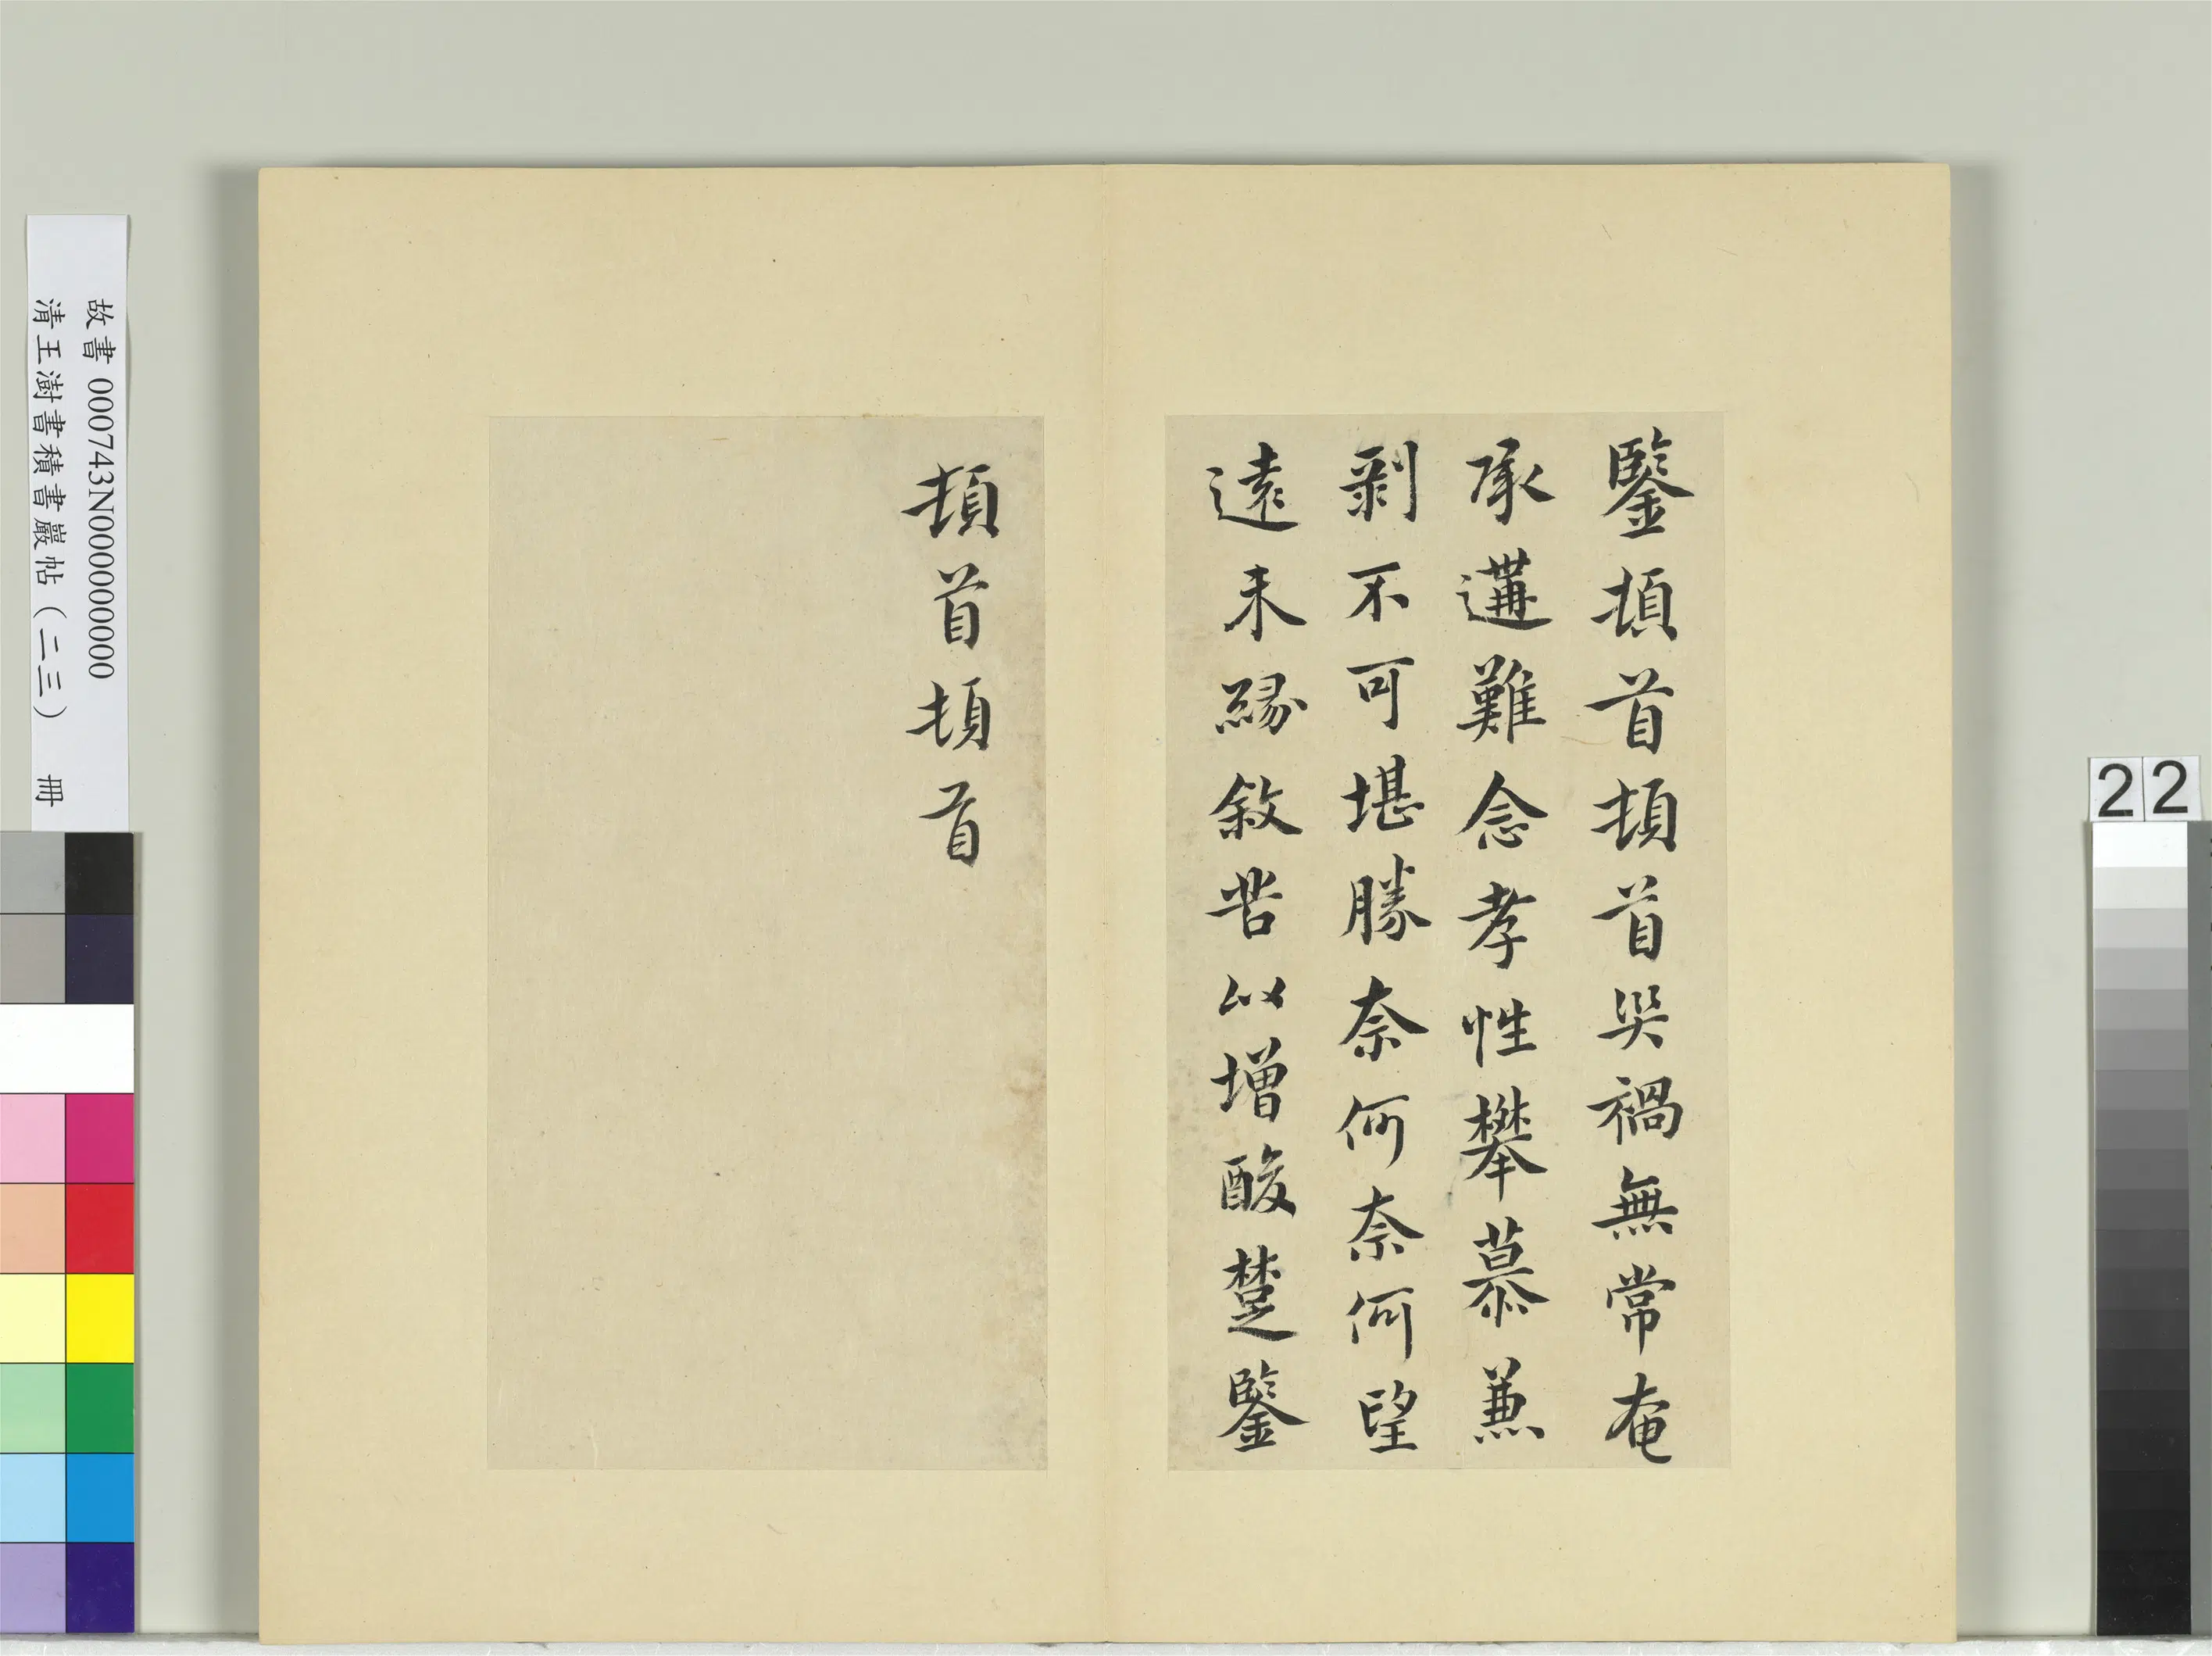 鑒頓首頓首哭禍無常奄
承遘難念孝性攀慕兼
剝不可堪勝奈何奈何望
遠未緣敘苦以增酸楚鑒
頓首頓首
故書 000743N000000000
清王澍書積書巖帖（二三） 冊
22